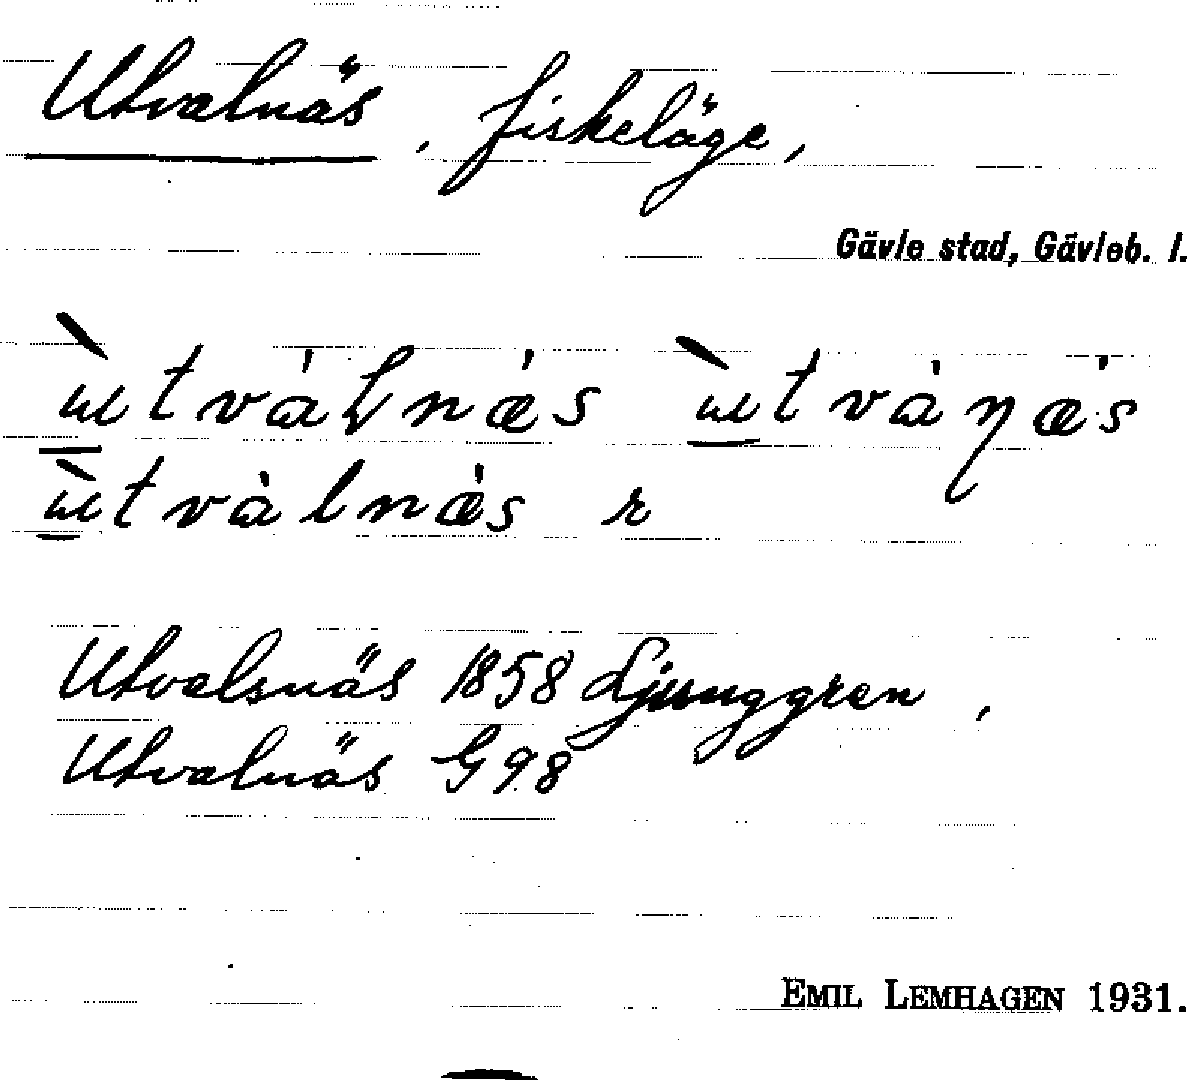 Utvalnäs, fiskeläge,
Gävle stad, Gävleb. l.
ùtválnä́s ùtváṇä́s
ùtválnä́s r
Utvalsnäs 1858 Ljunggren,
Utvalnäs G98
EMIL LEMHAGEN 1931.